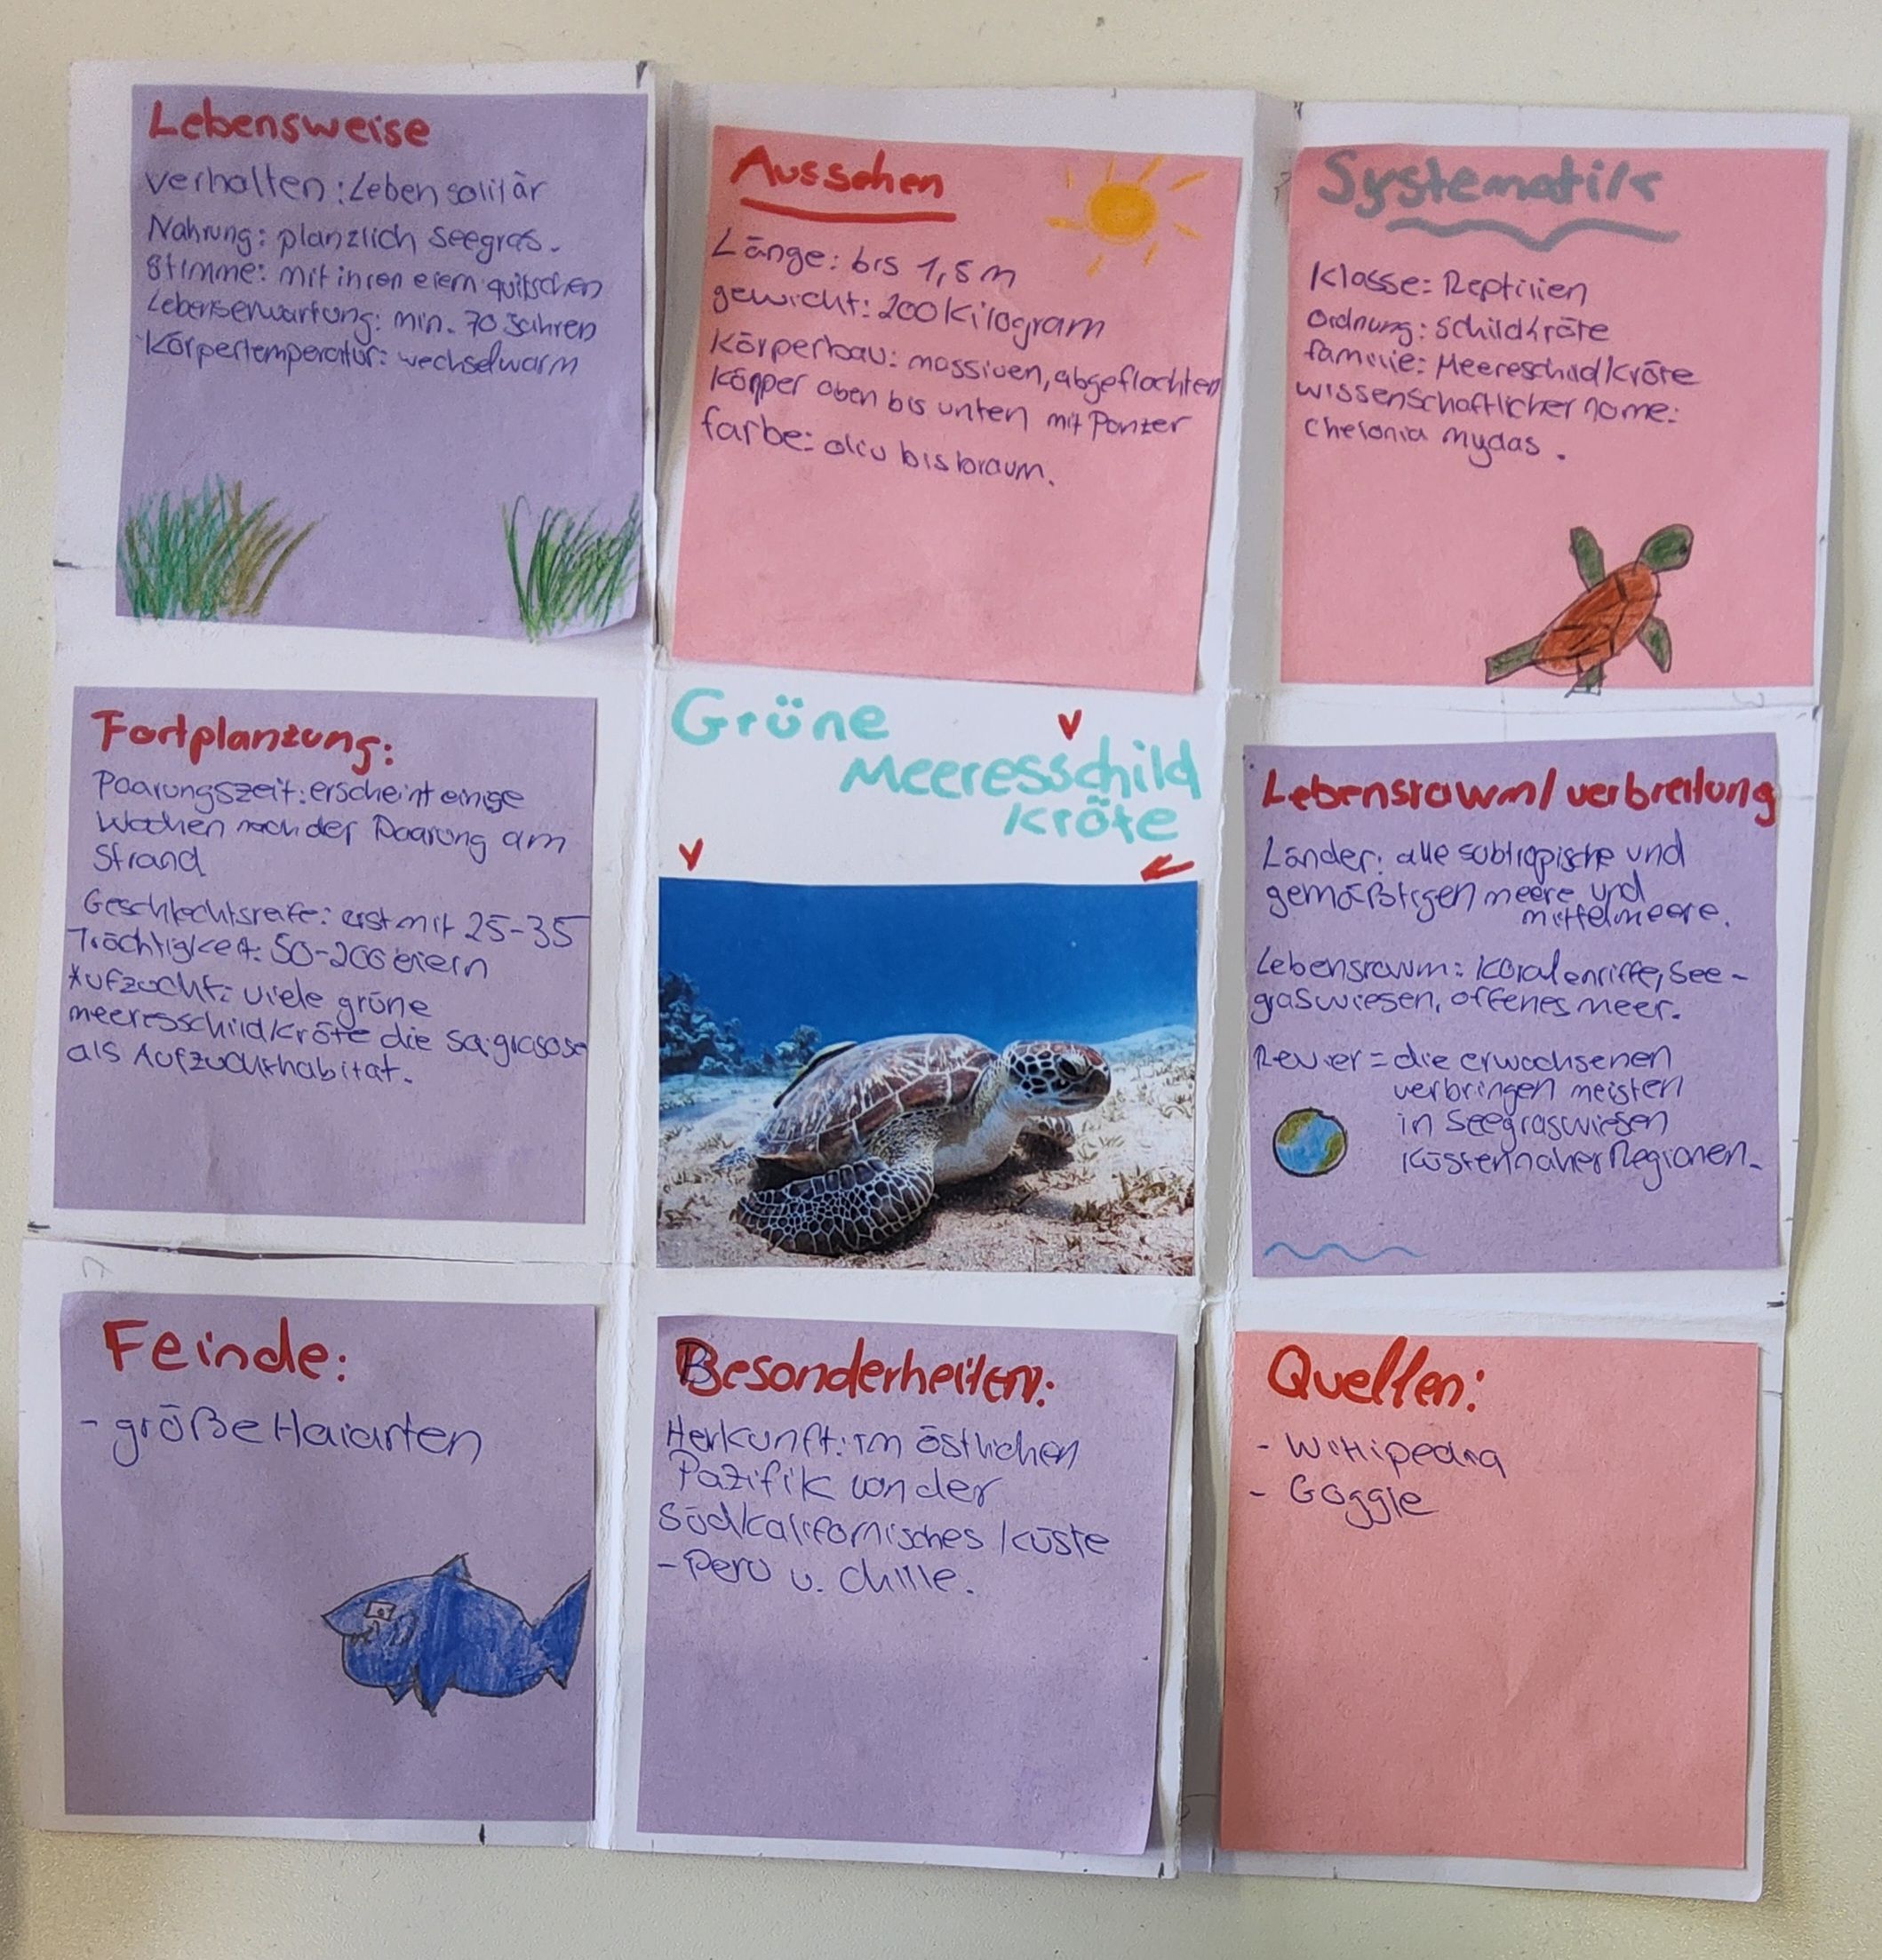 Lebensweise
verhalten: Leben solitär
Nahrung: planzlich seegras.
Stimme: mit ihren eiern quitschen
Lebenserwartung: min. 70 Jahren
Körpertemperatur: wechselwarm
Aussehen
Länge: bis 1,5 m
gewicht: 200 Kilogram
Körperbau: massiven, abgeflachten
Körper oben bis unten mit Panzer
farbe: oliv bis braum.
Systematik
Klasse: Reptilien
Ordnung: Schildkröte
familie: Meereschildkröte
wissenschaftlicher name:
chelonia mydas.
Fortplanzung:
Paarungszeit: erscheint einige
Wochen nach der Paarung am
Strand
Geschlechtsreife: erst mit 25-35
Trächtigkeit: 50-200 eiern
Aufzucht: viele grüne
meeresschildkröte die
als Aufzuchthabitat.
Grüne
Meeresschild
kröte
Lebensraum/verbreitung
Länder: alle subtropische und
gemäßtigen meere und
mittelmeere.
Lebensraum: Koralenriffe, See-
graswiesen, offenes meer.
Revier = die erwachsenen
verbringen meisten
in seegraswiesen
Küstennaher Regionen.
Feinde:
- größe Haiarten
Besonderheiten:
Herkunft: im östlichen
Pazifik von der
Südkalifornisches küste
- Peru u. chille.
Quellen:
- Wikipedia
- Goggle